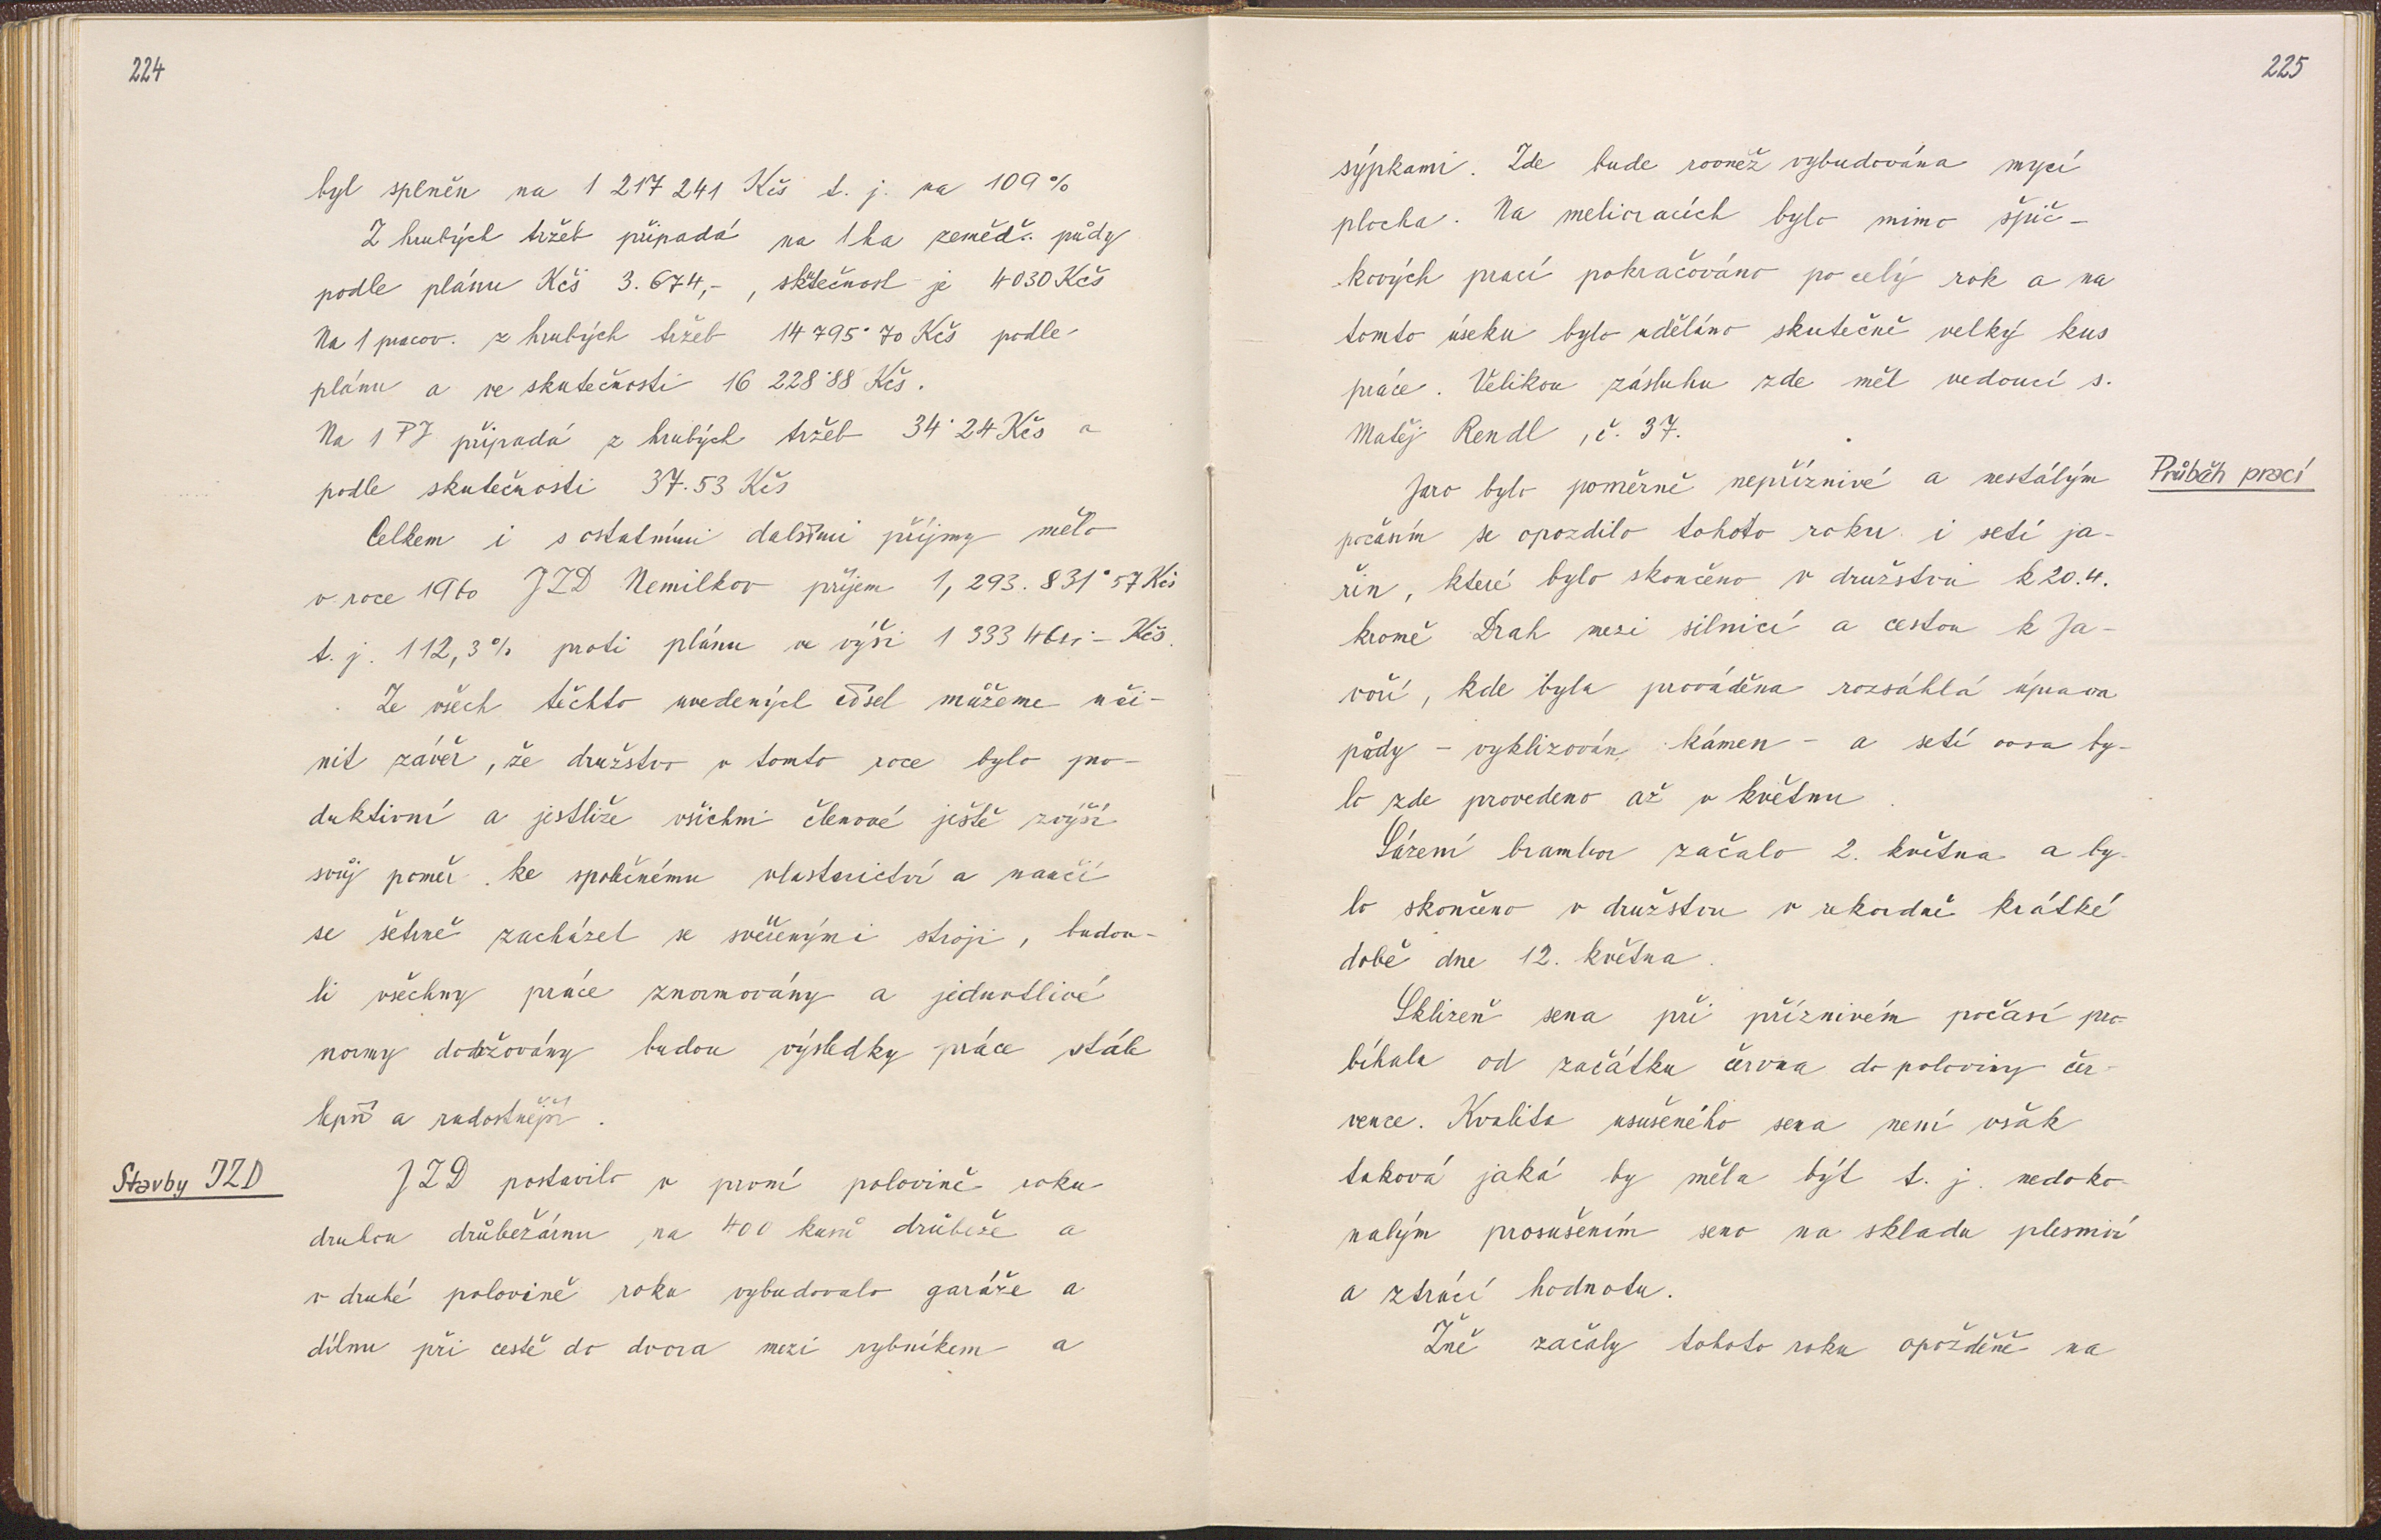 224
byl splněn na 1 217 241 Kčs t. j. na 109 %
Z hrubých tržeb připadá na 1 ha zeměděl. půdy
podle plánu Kčs 3.674,-, skutečnost je 4030 Kčs
Na 1 pracov. z hrubých tržeb 14 795˙70 Kčs podle
plánu a ve skutečnosti 16 228˙88 Kčs.
Na 1 PJ připadá z hrubých tržeb 34˙24 Kčs a
podle skutečnosti 37.53 Kčs
Celkem i s ostatními dalšími příjmy mělo
v roce 1960 JZD Nemilkov příjem 1,293.831˙57 Kčs
t. j. 112,3 % proti plánu ve výši 1 333 Kčs.
Ze všech těchto uvedených čísel můžeme uči-
nit závěr, že družstvo v tomto roce bylo pro-
duktivní a jestliže všichni členové ještě zvýší
svůj poměr ke společnému vlastnictví a naučí
se šetrně zacházet se svěřenými stroji, budou-
li všechny práce znormovány a jednotlivé
normy dodržovány budou výsledky práce stále
lepší a radostnější.
Stavby JZD
JZD postavilo v první polovině roku
druhou drůbežárnu na 400 kusů drůbeže a
v druhé polovině roku vybudovalo garáže a
dílnu při cestě do dvora mezi rybníkem a
225
sýpkami. Zde bude rovněž vybudována mycí
plocha. Na melioracích bylo mimo špič-
kových prací pokračováno po celý rok a na
tomto úseku bylo uděláno skutečně velký kus
práce. Velikou zásluhu zde měl vedoucí s.
Matěj Rendl, č. 37.
Průběh prací
Jaro bylo poměrně nepříznivé a nestálým
počasím se opozdilo tohoto roku i setí ja-
řin, které bylo skončeno v družstvu k 20.4.
kromě Drah mezi silnicí a cestou k Ja-
voří, kde byla prováděna rozsáhlá úprava
půdy - vyklizován kámen - a setí ovsa by-
lo zde provedeno až v květnu.
Sázení brambor začalo 2. května a by-
lo skončeno v družstvu v rekordně krátké
době dne 12. května.
Sklizeň sena při příznivém počasí pro-
bíhala od začátku června do poloviny čer-
vence. Kvalita usušeného sena není však
taková jaká by měla být t. j. nedoko-
nalým prosušením seno na skladu plesniví
a ztrácí hodnotu.
Žně začaly tohoto roku opožděně na